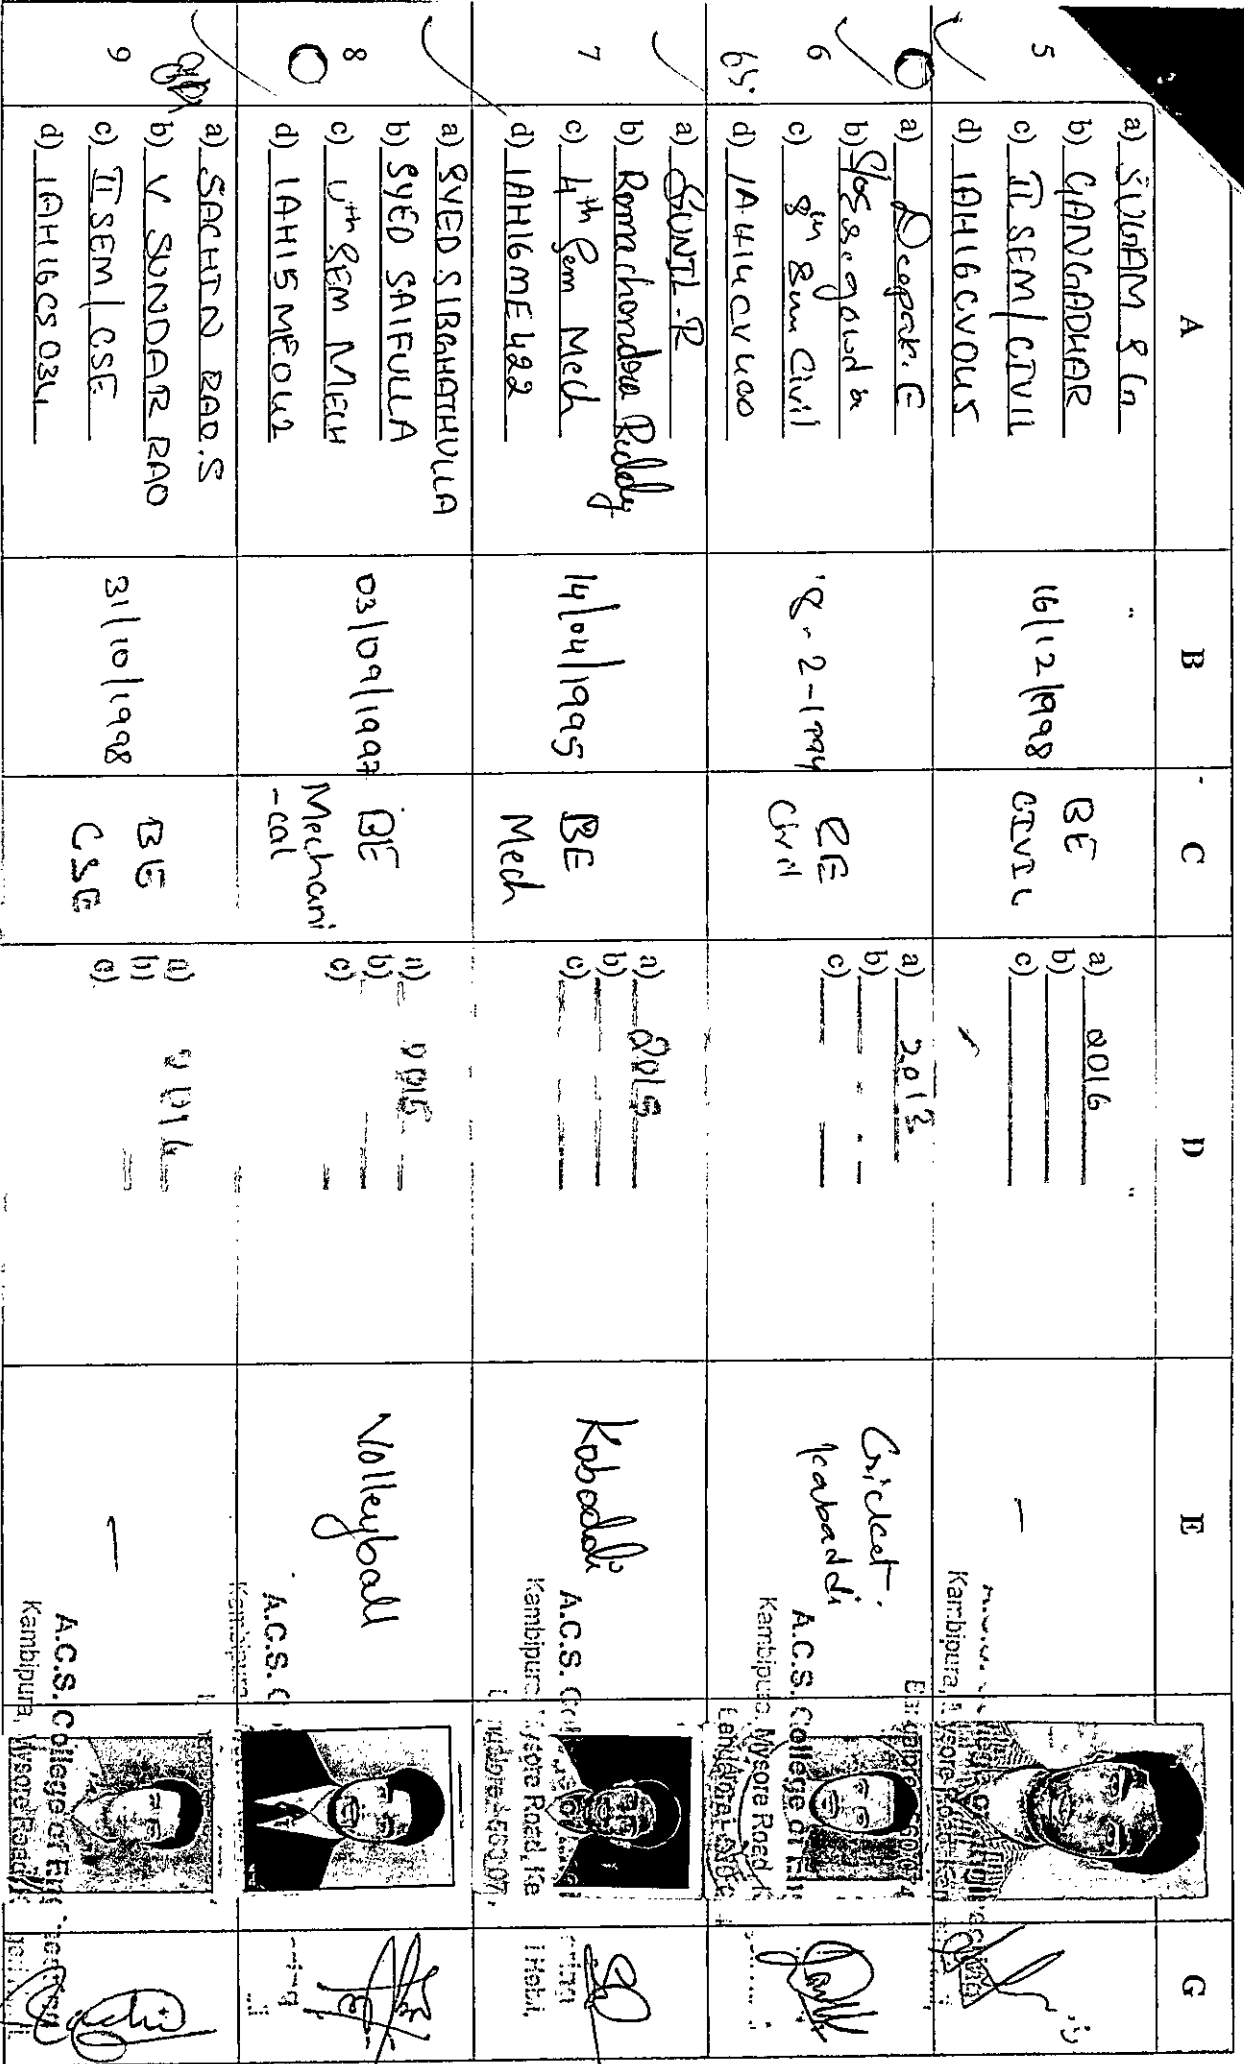 A B C D E G
5
a) SUGAM S G
b) GANGADHAR
c) II SEM/CIVIL
d) 1AH16CV045
16/12/1998
BE
CIVIL
a) 2016
b)
c)
—
Kambipura,
6
a) Deepak. E
b)
c) 8th Sem Civil
d) 1AH14CV400
8-2-1994
BE
Civil
a) 2013
b)
c)
Cricket.
Kabaddi
A.C.S. College of
Kambipura, Mysore Road
7
a) SUNIL-R
b) Ramachandra Reddy
c) 4th Sem Mech
d) 1AH16ME422
14/04/1995
BE
Mech
a) 2015
b)
c)
Kabaddi
A.C.S.
Kambipura Mysore Road, Ke
8
a) SYED SIBGHATHULLA
b) SYED SAIFULLA
c) 4th SEM MECH
d) 1AH15ME042
03/09/1997
BE
Mechani
-cal
a) 2015
b)
c)
Volleyball
A.C.S. C
9
a) SACHIN RAO.S
b) V SUNDAR RAO
c) II SEM/CSE
d) 1AH16CS034
31/10/1998
BE
CSE
a) 2016
b)
c)
—
A.C.S. College of
Kambipura, Mysore Road
Sachin